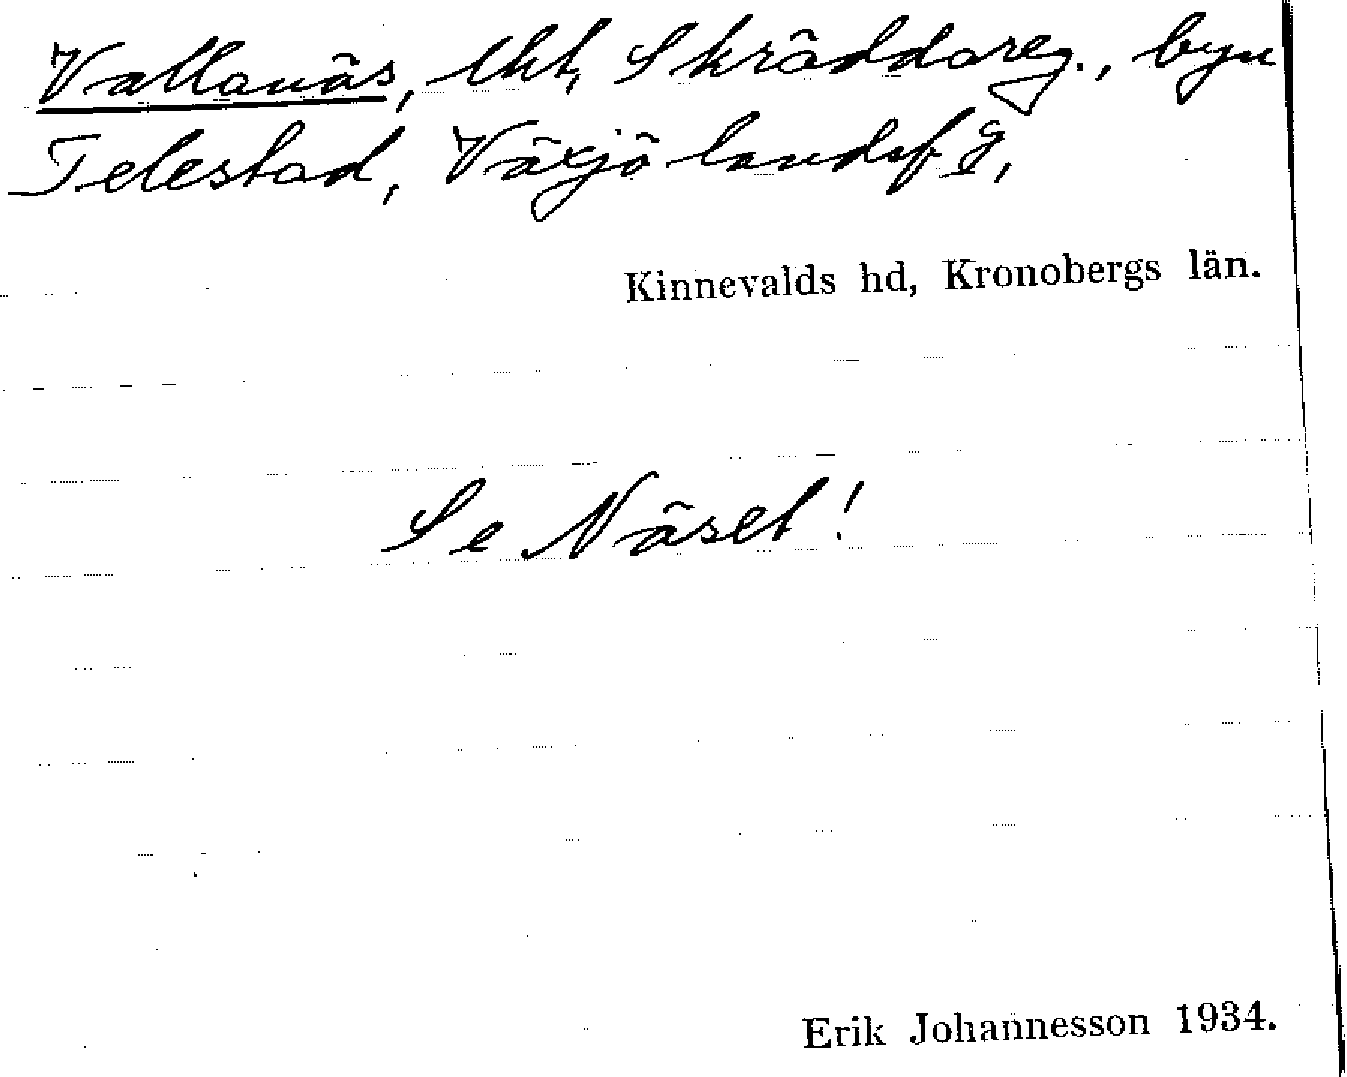 Vallanäs, lht, Skräddareg., byn
Telestad, Växjö landsf g,
Kinnevalds hd, Kronobergs län.
Se Näset!
Erik Johannesson 1934.